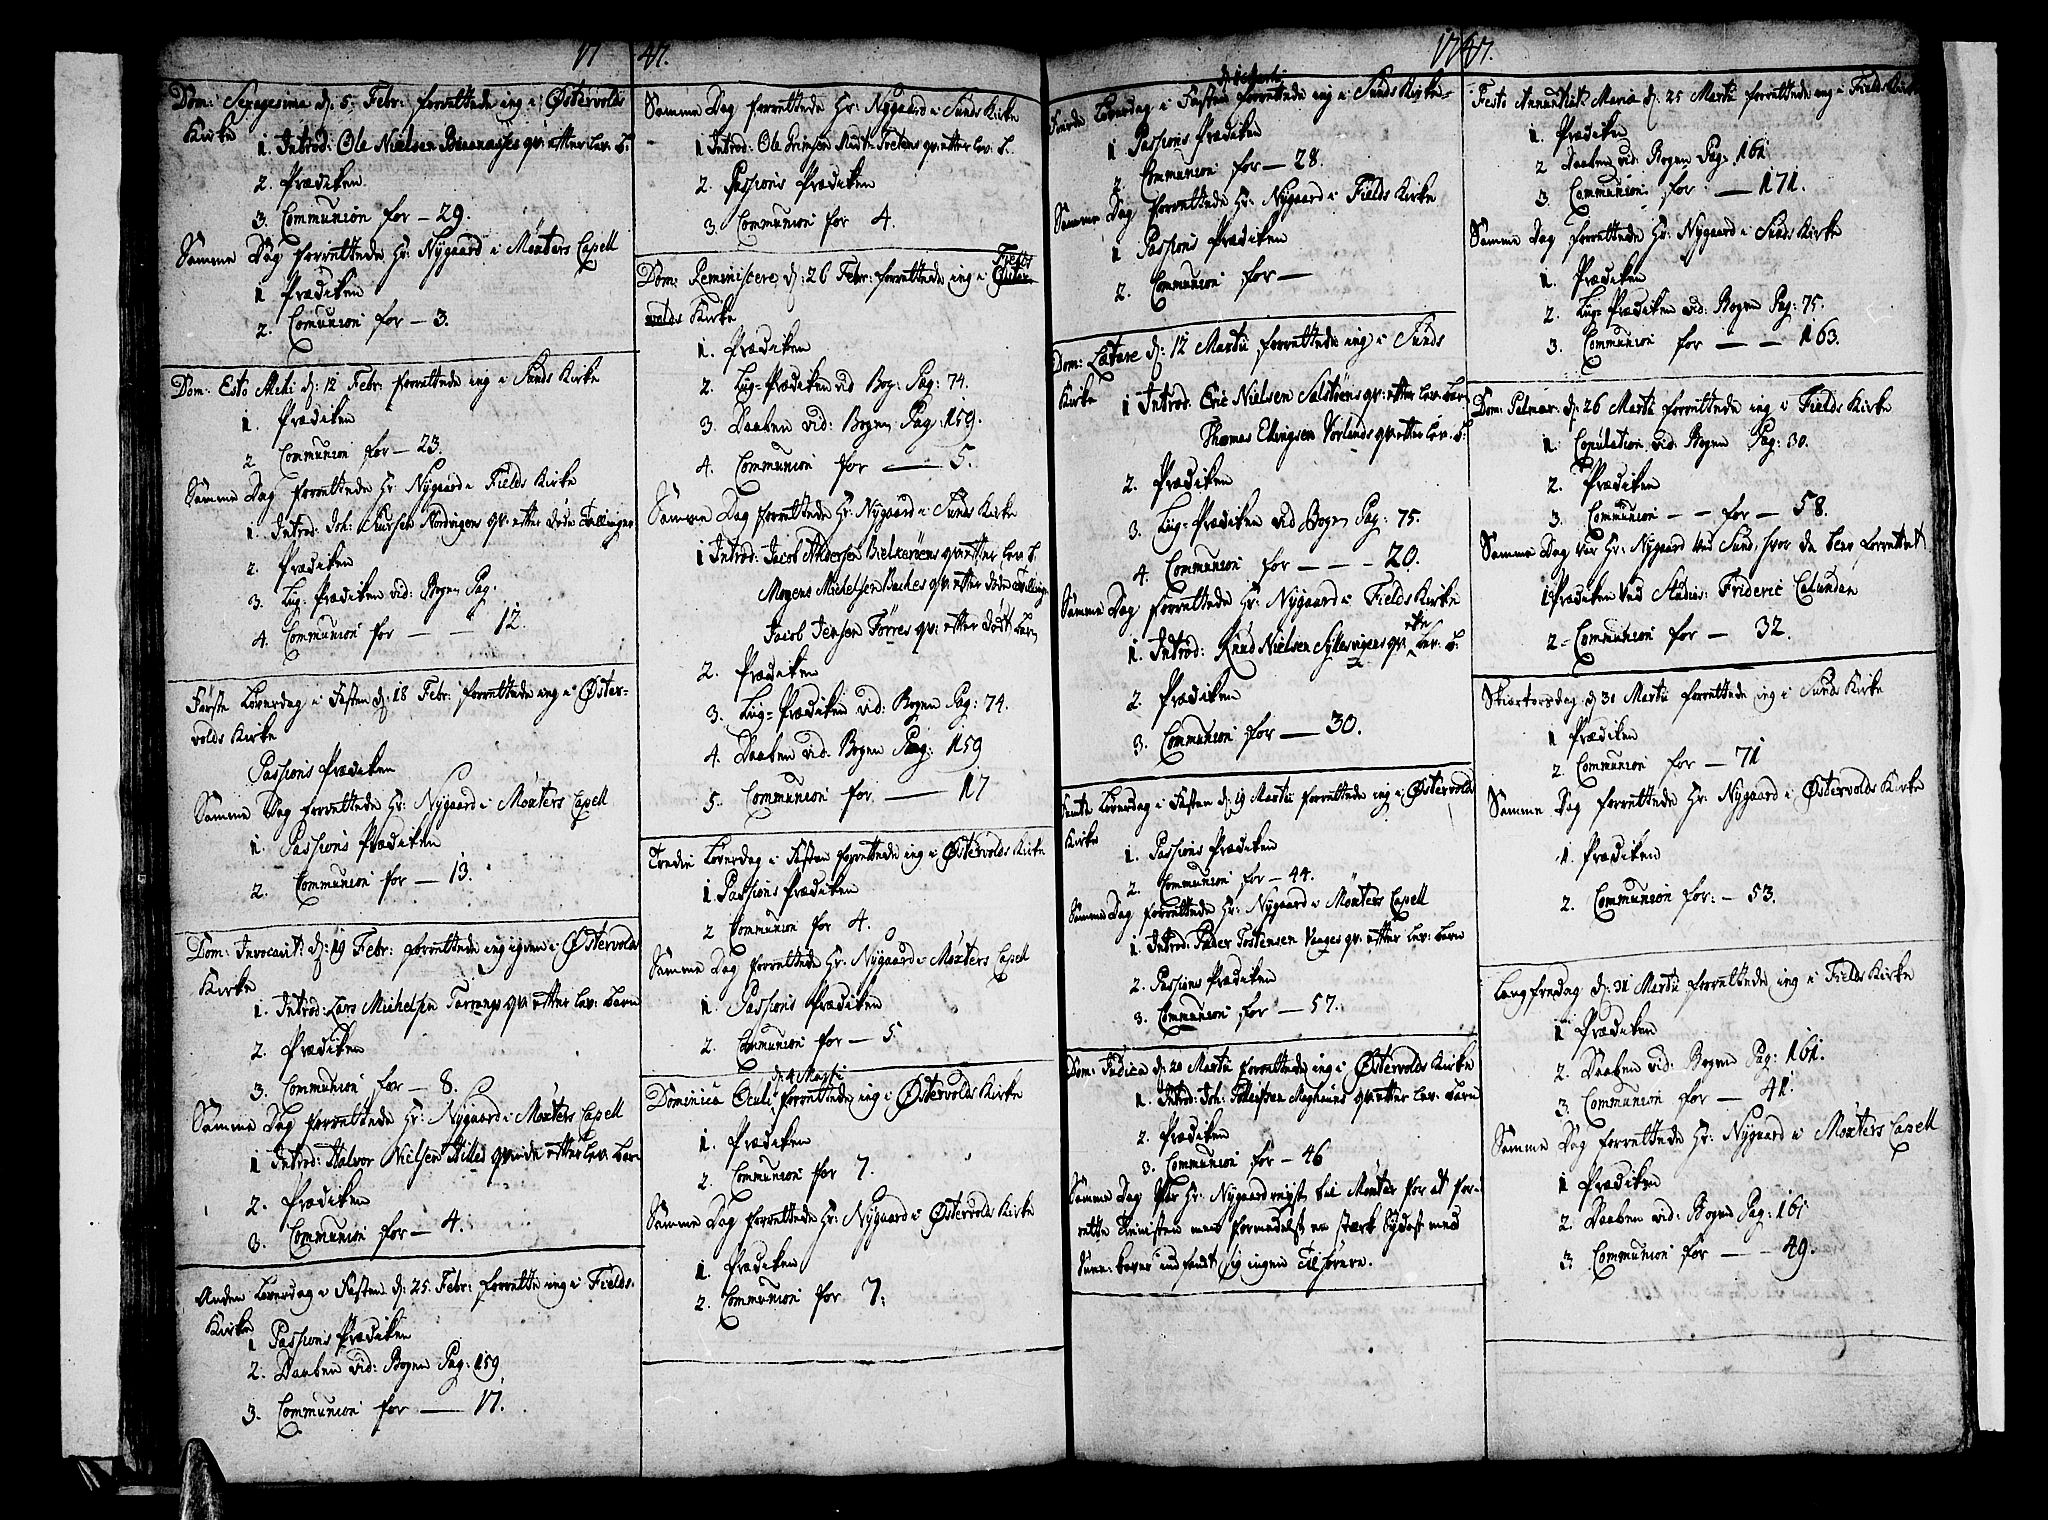 17 47.
Dom: Sexagesima d: 5. Febr: forrettede ieg i Østervolds
Kirke
1. Introd: Ole Nielsen qv: efter lev: B.
2. Prædiken
3. Communion for — 29.
Samme Dag forrettede Hr: Nygaard i Møxters Capell
1 Prædiken
2. Comunion for — 3.
Dom: Esto Mihi d: 12 Febr: forrettede ieg i Sunds Kirke
1. Prædiken
2 Communion for — 23.
Samme Dag forrettede Hr: Nygaard i Fields Kirke
1. Introd: Joh: Nordvigens qv: efter døde Tvillinger
2. Prædiken
3. Liig-Prædiken vid: Bogen Pag:
4. Communion for — — 12.
Første Løverdag i Fasten d: 18 Febr: forrettede ieg i Øster-
volds Kirke
Passions Prædiken
Samme Dag forrettede Hr: Nygaard i Møxters Capell
1. Passions Prædiken
2. Communion for — 13.
Dom: Invocavit: d: 19 Febr: forrettede ieg igien i Østervolds
Kirke
1. Introd: Lars Michelsen qv: efter lev: Barn
2. Prædiken
3. Communion for — 8.
Samme Dag forrettede Hr: Nygaard i Møxters Capell
1 Introd: Halvor Nielsen Hilles qvinde efter lev: Barn
2. Prædiken
3. Communion for — 4.
Anden Løverdag i Fasten d: 25. Febr: forrette ieg i Fields
Kirke
1 Passions Prædiken
2. Daaben vid: Bogen Pag: 159
3. Communion for — 17.
Samme Dag forrettede Hr: Nygaard i Sunds Kirke
1 Introd: Ole qv: efter lev: B.
2. Passions Prædiken
3. Communion for 4.
Dom: Reminiscere d: 26 Febr: forrettede ieg i Fields
Kirke
1. Prædiken
2. Liig-Prædiken vid Bog: Pag: 74.
3. Daaben vid: Bogen Pag: 159.
4. Communion for — 5.
Samme Dag forrettede Hr: Nygaard i Sunds Kirke
1 Introd: Jacob Andersen Bielkerøens qv: efter lev: B.
Mogens Michelsen Backes qv: efter døde Tvillinger
Jacob Jensen Tørres qv: efter dødt Barn
2. Prædiken
3. Liig-Prædiken vid: Bogen Pag: 74.
4. Daaben vid: Bogen Pag: 159
5. Communion for — 17
Tredie Løverdag i Fasten forrettede ieg i Østervolds Kirke
1. Passions Prædiken
2 Communion for 4.
Samme Dag forrettede Hr: Nygaard i Møxters Capell
1. Passions Prædiken
2. Communion for — 5.
d: 4 Marti
Dominica Oculi forrettede ieg i Østervolds Kirke
1. Prædiken
2. Communion for 7.
Samme Dag forrettede Hr: Nygaard i Østervolds Kirke
1. Prædiken
2. Communion for 7.
1747.
Fierde Løverdag i Fasten forrettede ieg i Sunds Kirke
1 Passions Prædiken
2. Communion for — 28.
Samme Dag forrettede Hr: Nygaard i Fields Kirke
1 Passions Prædiken
2. Communion for —
Dom: Lætare d: 12 Martii forrettede ieg i Sunds
Kirke
1 Introd: Eric Nielsen qv: efter lev: Barn
Thomas Ellingsen Vorlands qv: efter lev: B:
2. Prædiken
3. Liig-Prædiken vid Bogen Pag: 75.
4. Communion for — — — 20.
Samme Dag forrettede Hr: Nygaard i Fields Kirke
1. Introd: Knud Nielsen qv: efter lev: B.
2. Prædiken
3. Communion for — 30.
Femte Løverdag i Fasten d: 19 Martii forrettede ieg i Østervolds
Kirke
1. Passions Prædiken
2. Communion for — 44.
Samme Dag forrettede Hr: Nygaard i Møxters Capell
1. Introd: Peder Tostensen Vaages qv: efter lev: Barn
2. Passions Prædiken
3. Communion for — 57.
Dom: Judica d: 20 Martii forrettede ieg i Østervolds Kirke
1. Introd: Joh: qv: efter lev: Barn
2. Prædiken
3. Communion for — 46
Samme Dag var Hr: Nygaard reyst til Møxter for at for-
rette Tienisten men formedelst en stærk Sydost med
indfandt sig ingen Tilhørere.
Festo Annuntiat: Mariæ d: 25 Martii forrettede ieg i Fields Kirke
1. Prædiken
2 Daaben vid: Bogen Pag: 161
3 Communion for — 171.
Samme Dag forrettede Hr: Nygaard i Sunds Kirke
1. Prædiken
2. Liig-Prædiken vid: Bogen Pag: 75.
3. Communion for — — 163.
Dom: Palmar: d: 26 Martii forrettede ieg i Fields Kirke
1. Copulation vid: Bogen Pag: 30.
2. Prædiken
3. Communion — — for — 58.
Samme Dag var Hr: Nygaard ved Sund, hvor da blev forrettet
1 Prædiken ved Studios: Frideric
2 - Communion for — 32.
Skiærtorsdag d: 30 Martii forrettede ieg i Sunds Kirke
1 Prædiken
2. Communion for — 71
Samme Dag forrettede Hr: Nygaard i Østervolds Kirke
1. Prædiken
2. Communion for: — 53.
Langfredag d: 31 Martii forrettede ieg i Fields Kirke
1 Prædiken
2. Daaben vid: Bogen Pag: 161.
3. Communion for — 41
Samme Dag forrettede Hr: Nygaard i Møxters Capell
1 Prædiken
2. Daaben vid: Bogen Pag: 161
3 Communion for — — 49.